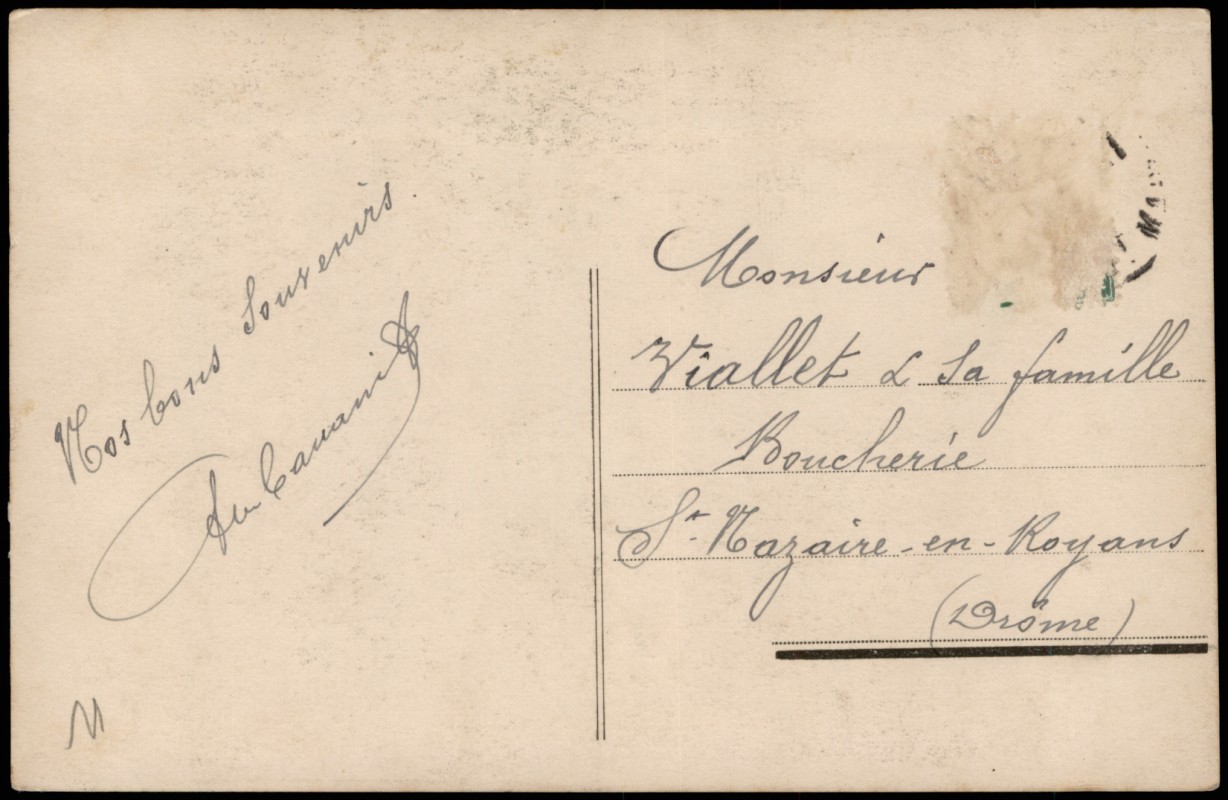 Nos bons Souvenirs.
Monsieur
Viallet & Sa famille
Boucherie
St. Nazaire-en-Royans
(Drôme)